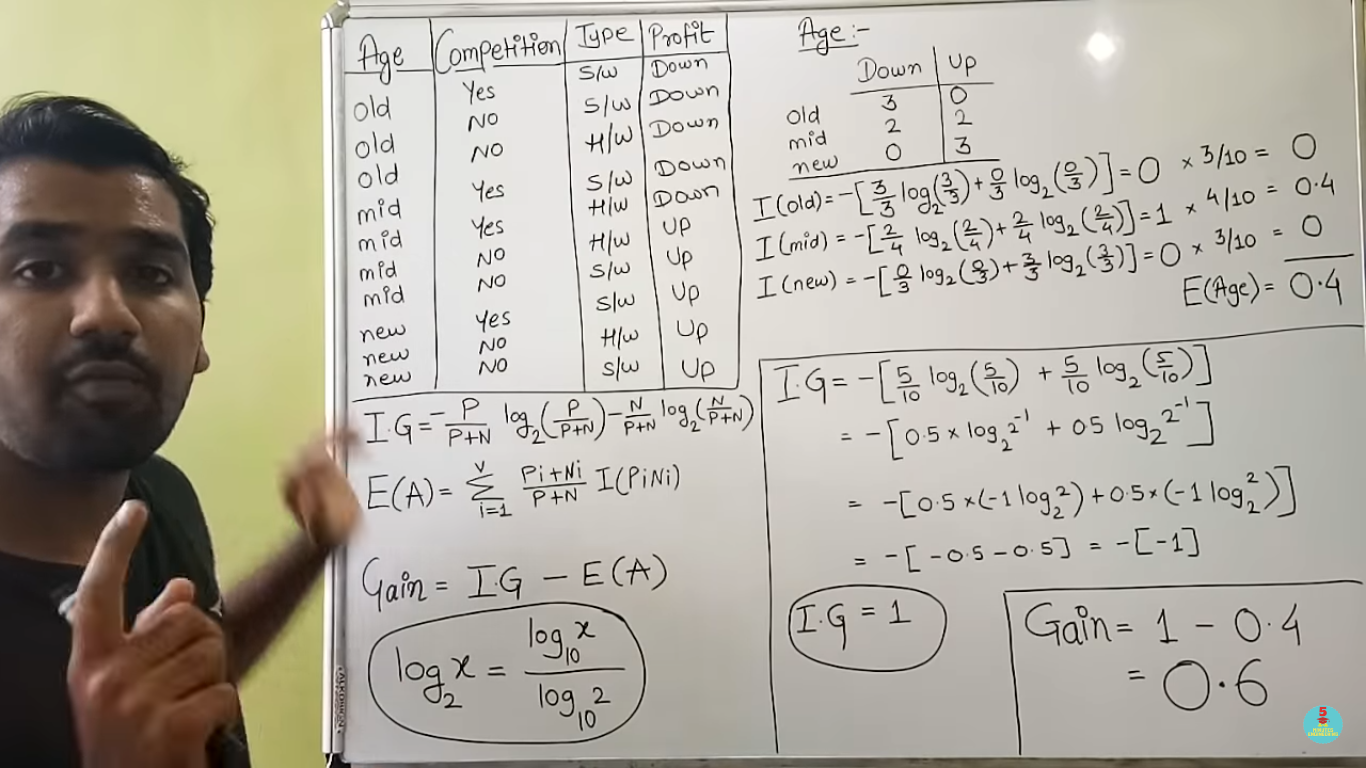 Age Competition Type Profit
old Yes S/W Down
old NO S/W Down
old NO H/W Down
mid Yes S/W Down
mid Yes H/W Down
mid NO H/W UP
mid NO S/W Up
new Yes S/W Up
new NO H/W Up
new NO S/W Up
I.G = -P/P+N log₂(P/P+N) - N/P+N log₂(N/P+N)
E(A) = Σ i=1 v Pi+Ni/P+N I(PiNi)
Gain = I.G - E(A)
log₂x = log₁₀x / log₁₀2
Age :-
Down Up
old 3 0
mid 2 2
new 0 3
I(old) = -[3/3 log₂(3/3) + 0/3 log₂(0/3)] = 0 × 3/10 = 0
I(mid) = -[2/4 log₂(2/4) + 2/4 log₂(2/4)] = 1 × 4/10 = 0.4
I(new) = -[0/3 log₂(0/3) + 3/3 log₂(3/3)] = 0 × 3/10 = 0
E(Age) = 0.4
I.G = -[5/10 log₂(5/10) + 5/10 log₂(5/10)]
= -[0.5 × log₂2⁻¹ + 0.5 log₂2⁻¹]
= -[0.5 × (-1 log₂2) + 0.5 × (-1 log₂2)]
= -[-0.5 - 0.5] = -[-1]
I.G = 1
Gain = 1 - 0.4
= 0.6
5
MINUTES
ENGINEERING